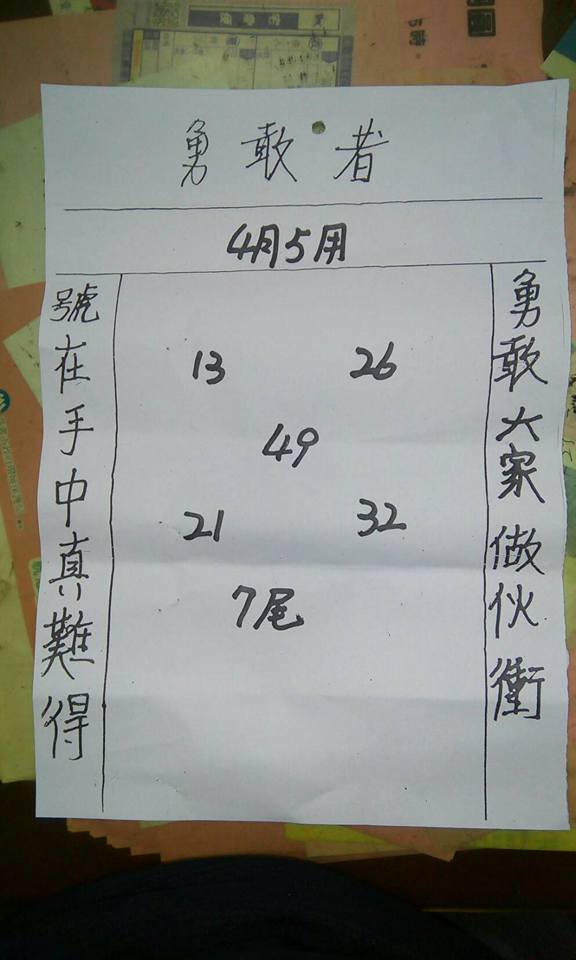 勇敢者
4月5用
勇敢大家做伙衝
13 26
49
21 32
7尾
號在手中真難得